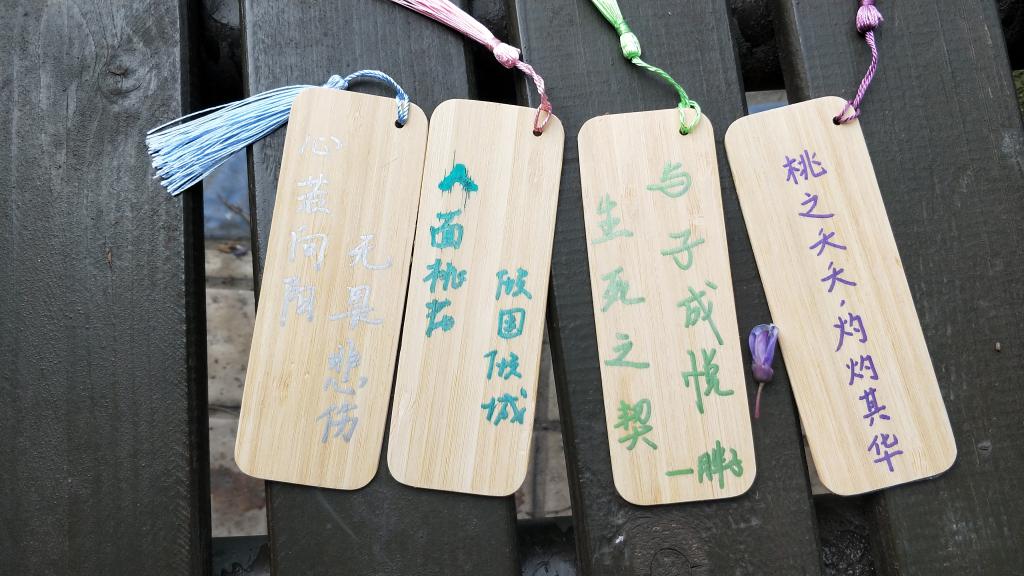 心蓝向阳
无畏悲伤
人面桃花
倾国倾城
生死之契
与子成悦
一胖子
桃之夭夭,灼灼其华